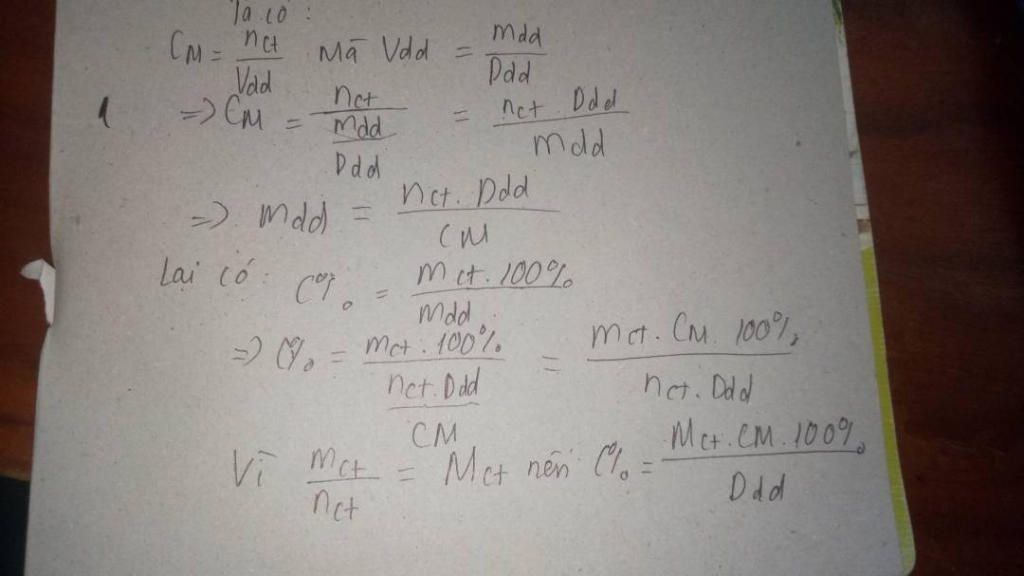 Ta có :
CM = nct / Vdd Mã Vdd = mdd / Ddd
=> CM = nct / (mdd / Ddd) = nct . Ddd / mdd
=> mdd = nct . Ddd / CM
Lại có : C% = mct . 100% / mdd
=> C% = mct . 100% / (nct . Ddd / CM) = mct . CM . 100% / nct . Ddd
Vì mct / nct = Mct nên C% = Mct . CM . 100% / Ddd